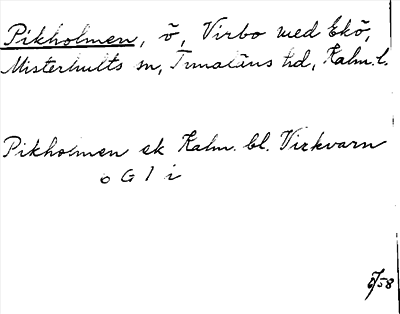 Pikholmen, ö, Virbo med Ekö,
Misterhults sn, Tunaläns hd, Kalm. l.
Pikholmen ek Kalm. bl. Virkvarn
o G 1 i
6/58